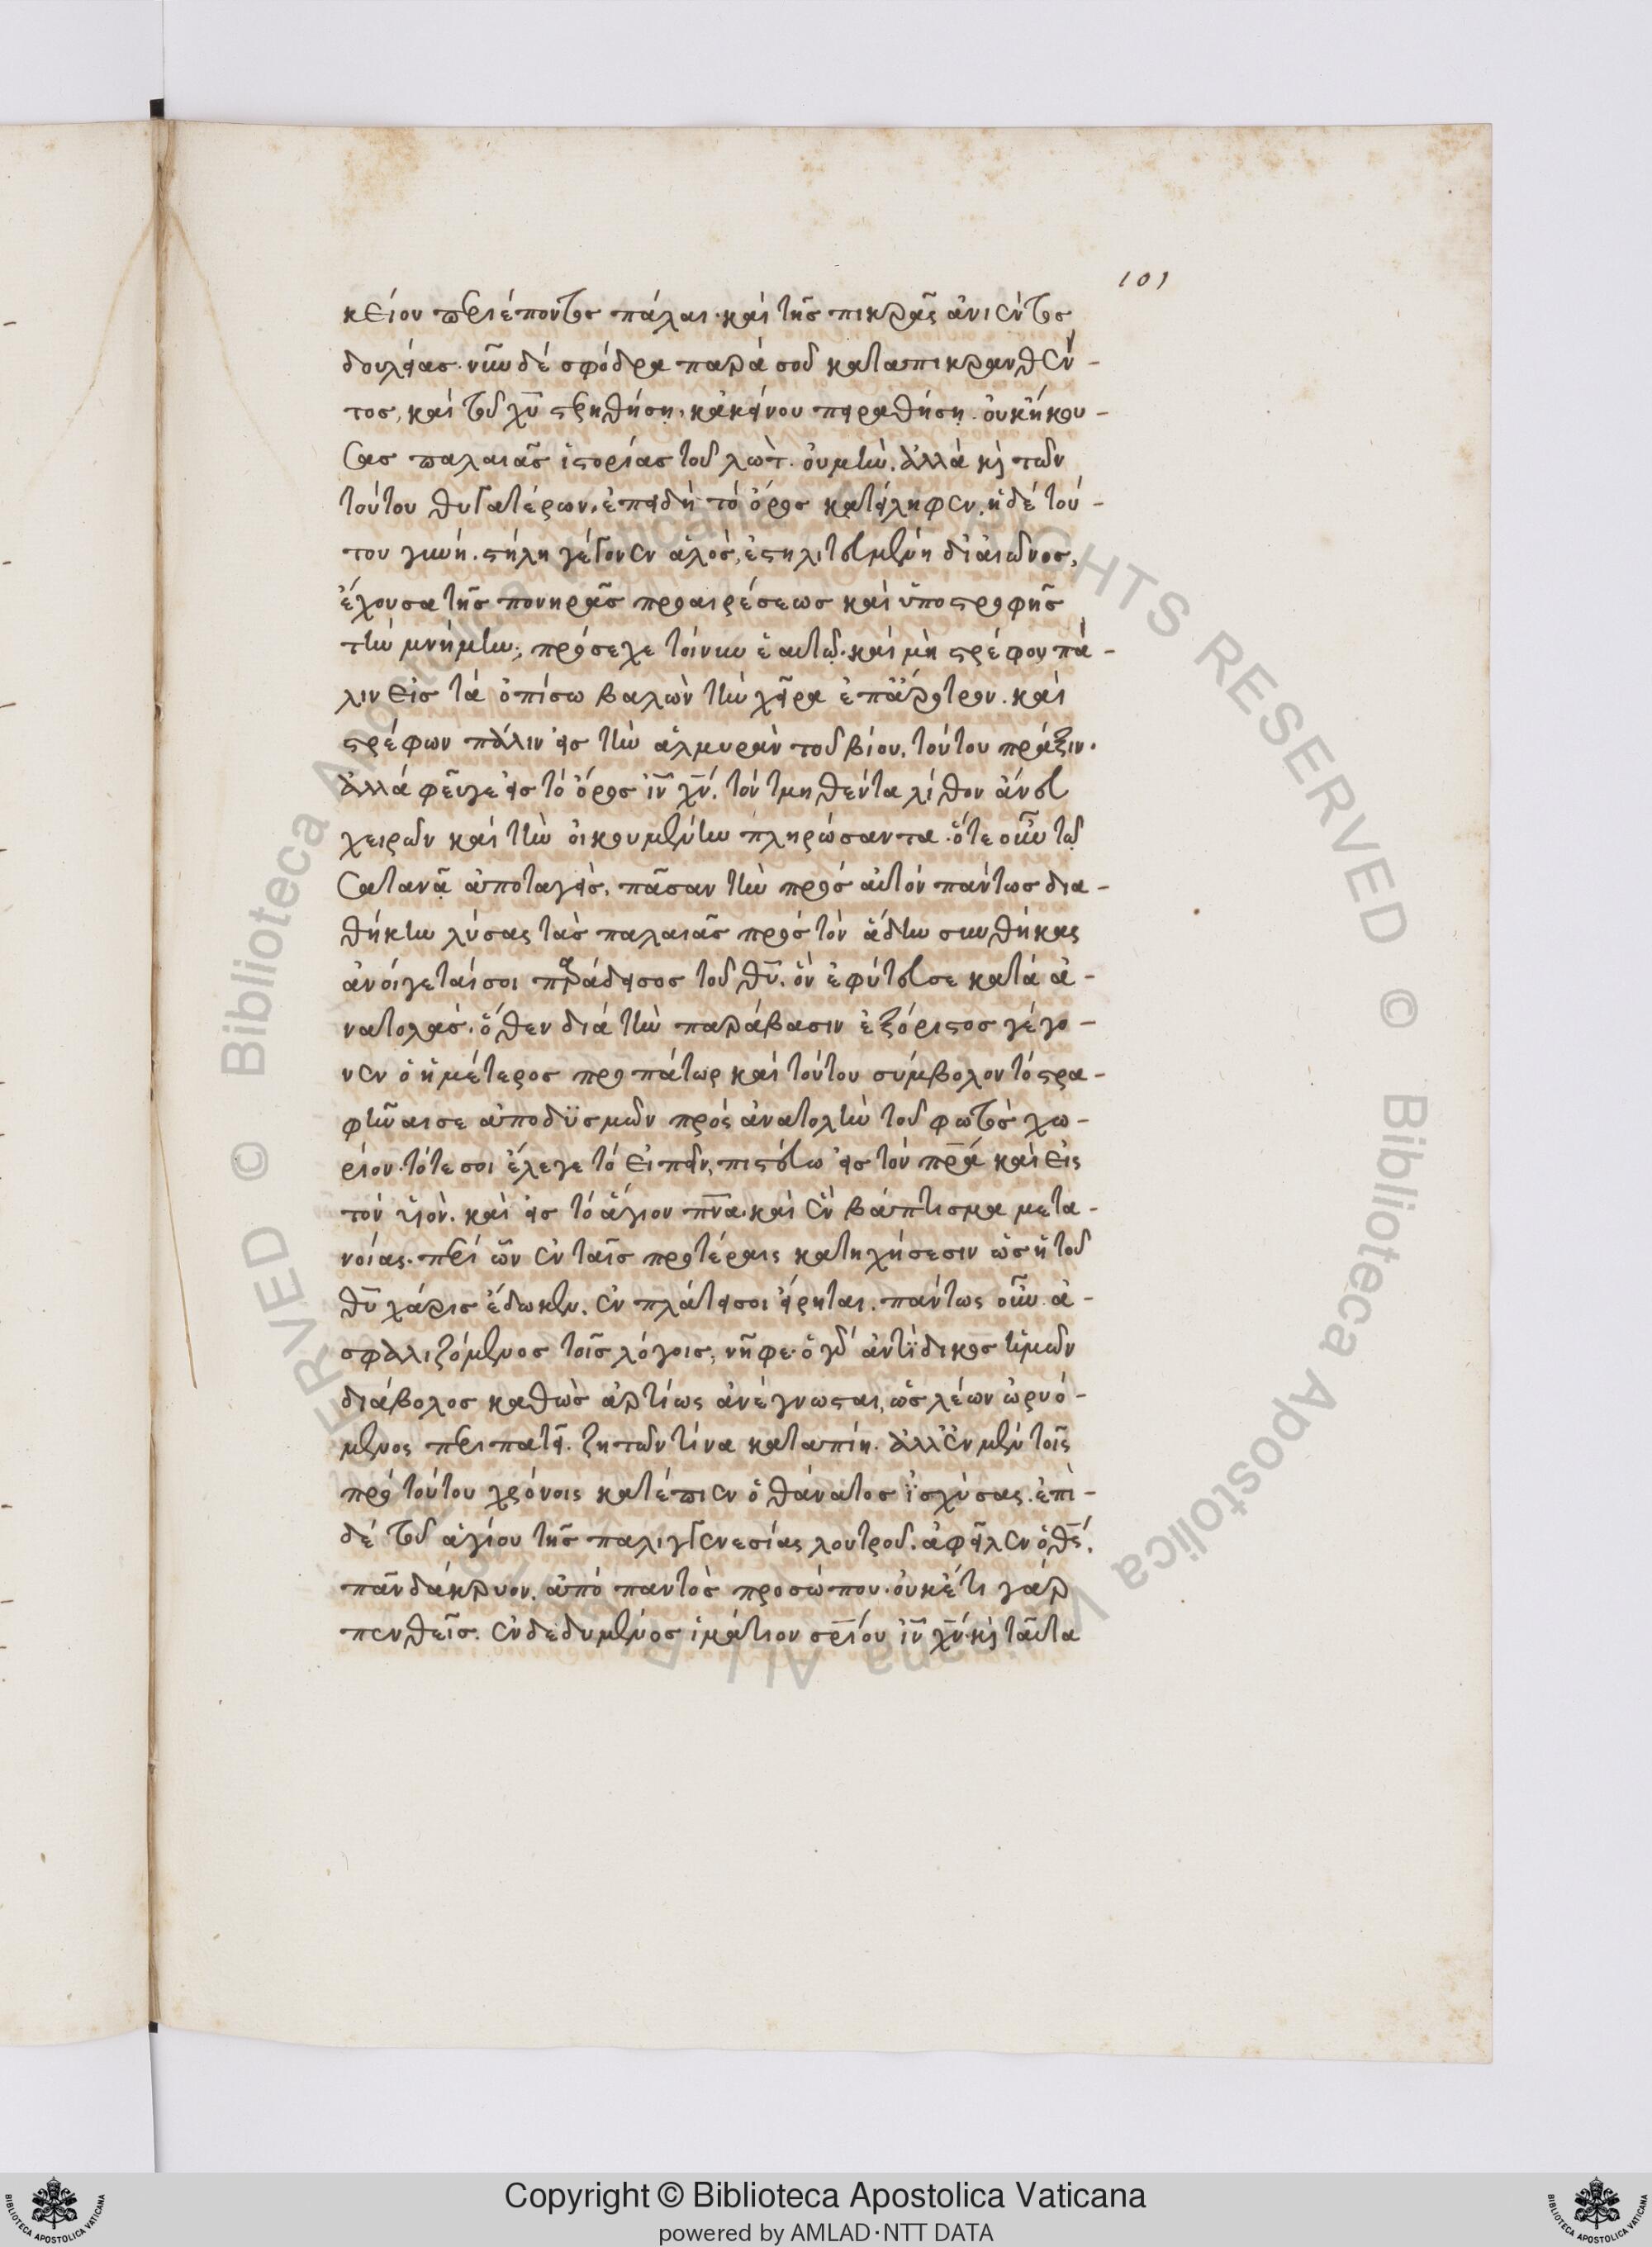 101
κείου περιέποντος πάλαι· καὶ τῆς πικρᾶς ἀνιέντος
δουλείας· νῦν δὲ σφόδρα παρὰ σοῦ καταπικρανθέν-
τος, καὶ τοῦ χ̅υ̅ στερηθήσῃ, κἀκείνου πειραθήσῃ. οὐκ ἤκου-
σας παλαιᾶς ἱστορίας τοῦ λώτ. οὐ μὴν, ἀλλὰ κ̀ τῶν
τούτου θυγατέρων, ἐπειδὴ τὸ ὄρος κατείληφεν, ἡ δὲ τού-
του γυνή, στήλη γέγονεν ἁλός, ἐστηλιτευμένη δι' αἰῶνος,
ἔχουσα τῆς πονηρᾶς προαιρέσεως καὶ ὑποστροφῆς
τὴν μνήμην, πρόσεχε τοίνυν ἑαυτῷ· καὶ μὴ στρέφου πά-
λιν εἰς τὰ ὀπίσω βαλὼν τὴν χεῖρα ἐπ' ἄροτρον. καὶ
στρέφων πάλιν εἰς τὴν ἁλμυρὰν τοῦ βίου, τούτου πρᾶξιν.
ἀλλὰ φεῦγε εἰς τὸ ὄρος ι̅ν̅ χ̅ν̅. τὸν τμηθέντα λίθον ἄνευ
χειρῶν καὶ τὴν οἰκουμένην πληρώσαντα. ὅτε οὖν τῷ
Σατανᾷ ἀποταγείς, πᾶσαν τὴν πρὸς αὐτὸν πάντως δια-
θήκην λύσας τὰς παλαιᾶς πρὸς τὸν ἅδην συνθήκας
ἀνοίγεταί σοι παράδεισος τοῦ θ̅υ̅. ὃν ἐφύτευσε κατὰ ἀ-
νατολάς. ὅθεν διὰ τὴν παράβασιν ἐξόριστος γέγο-
νεν ὁ ἡμέτερος προπάτωρ καὶ τούτου σύμβολον τὸ στρα-
φῆναι σε ἀπὸ δϋσμῶν πρὸς ἀνατολὴν τοῦ φωτὸς χω-
ρίον· τότε σοι ἔλεγε τὸ εἰπεῖν, πιστεύω εἰς τὸν π̅ρ̅α̅ καὶ εἰς
τὸν υἱὸν. καὶ εἰς τὸ ἅγιον π̅ν̅α̅. καὶ ἓν βάπτισμα μετα-
νοίας. περὶ ὧν ἐν ταῖς προτέραις κατηχήσεσιν ὡς ἡ τοῦ
θ̅υ̅ χάρις ἔδωκεν. ἐν πλάτει σοι εἴρηται. πάντως οὖν ἀ-
σφαλιζόμενος τοῖς λόγοις, νῆφε· ὁ γὰρ ἀντίδικος ἡμῶν
διάβολος καθὼς ἀρτίως ἀνέγνωσται, ὡς λέων ὠρυό-
μενος περιπατεῖ. ζητῶν τίνα καταπίῃ. ἀλλ' ἐν μὲν τοῖς
πρὸ τούτου χρόνοις κατέπιεν ὁ θάνατος ἰσχύσας. ἐπὶ-
δὲ τοῦ ἁγίου τῆς παλιγγενεσίας λουτροῦ, ἀφεῖλεν ὁ θ̅ς̅,
πᾶν δάκρυον, ἀπὸ παντὸς προσώπου. οὐκέτι γὰρ
πενθεῖς. ἐνδεδυμένος ἱμάτιον σ̅ρ̅ίου ι̅ν̅ χ̅ν̅. κ̀ ταῦτα
Copyright © Biblioteca Apostolica Vaticana
powered by AMLAD·NTT DATA